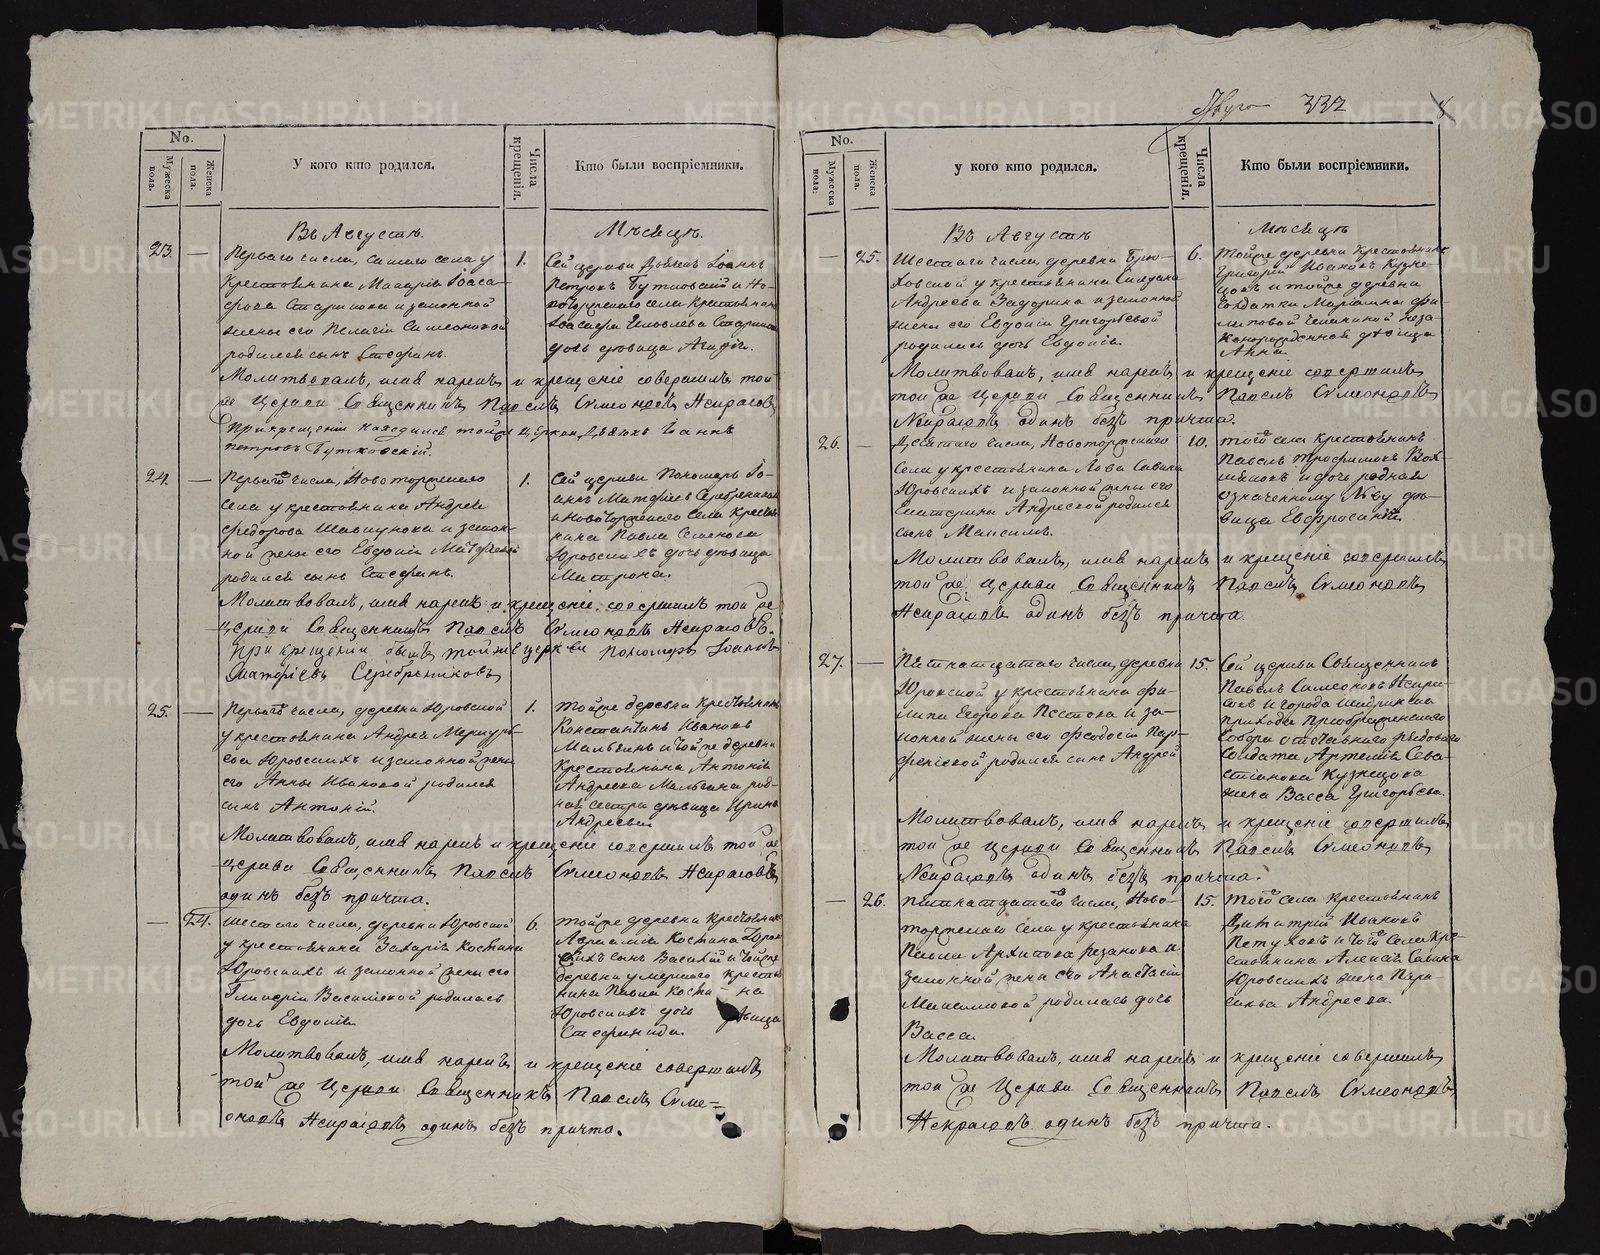 No.
Мужеска пола.
Женска пола.
У кого кто родился.
Числа крещенія.
Кто были воспріемники.
Въ Августѣ.
Мѣсяцѣ.
23. —
Перваго числа, самаго села у
крестьянина Макарія Іоаса-
фова и законной
жены его Пелагіи Симеоновой
родился сынъ Стефанъ.
1.
Сей церкви Дьячекъ Іоаннъ
Петровъ Бутковскій и Но-
воторжскаго села крестьянина
Іоасафа
дочь дѣвица
Молитвовалъ, имя нарекъ и крещеніе совершилъ той
же Церкви Священникъ Павелъ Симеоновъ Некрасовъ
При крещеніи находился тойже церкви Дьячекъ Іоаннъ
Петровъ Бутковскій.
24. —
Перваго числа, Новоторжскаго
села у крестьянина Андрея
Федорова и закон-
ной жены его Евдокіи Матфеевой
родился сынъ Стефанъ.
1.
Сей церкви Пономарь Іо-
аннъ Матфіевъ Серебренниковъ
и Новоторжскаго Села крестья-
нина Павла Семенова
Юровскихъ дочь дѣвица
Матрона.
Молитвовалъ, имя нарекъ и крещеніе совершилъ той же
церкви Священникъ Павелъ Симеоновъ Некрасовъ.
При крещеніи былъ тойже церкви пономарь Іоаннъ
Матфіевъ Серебрениковъ
25. —
Перваго числа, деревни Юровской
у крестьянина Андрея Меркурь-
ева Юровскихъ и законной жены
его Анны Ивановой родился
сынъ Антоній.
1.
тойже деревни крестьянинъ
Константинъ Ивановъ
и тойже деревни
крестьянина Антонія
Андреева род-
ная сестра дѣвица Ирина
Андреева.
Молитвовалъ, имя нарекъ и крещеніе совершилъ той же
церкви Священникъ Павелъ Симеоновъ Некрасовъ
одинъ безъ причта.
— 24.
шестаго числа, деревни Юровской
у крестьянина Захарія Костина
Юровскихъ и законной жены его
Гликеріи Васильевой родилась
дочь Евдокія.
6.
тойже деревни крестьянина
Авраамія Костина Юров-
скихъ сынъ Василій и тойже
деревни умершаго крестья-
нина Павла Кости — на
Юровскихъ дочь дѣвица
Стефанида.
Молитвовалъ, имя нарекъ и крещеніе совершилъ
той же Церкви Священникъ Павелъ Симе=
оновъ Некрасовъ одинъ безъ причта.
Авгус 332
No.
Мужеска пола.
Женска пола.
у кого кто родился.
Числа крещенія.
Кто были воспріемники.
Въ Августѣ
Мѣсяцѣ
— 25.
Шестаго числа, деревни Брю-
ховской у крестьянина
Андреева Задорина и законной
жены его Евдокіи Григорьевой
родилась дочь Евдокія.
6.
тойже деревни крестьянинъ
Григорій Ивановъ Кузне-
цовъ и тойже деревни
солдатки Маріамны Фи-
липовой неза-
конорожденная дѣвица
Анна.
Молитвовалъ, имя нарекъ и крещеніе совершилъ
той же Церкви Священникъ Павелъ Симеоновъ
Некрасовъ одинъ безъ причта.
26. —
Десятаго числа, Новоторжскаго
Села у крестьянина Льва Савина
Юровскихъ и законной жены его
Екатерины Андреевой родился
сынъ Максимъ.
10.
того села крестьянинъ
Павелъ Трофимовъ
и дочь родная
означенному Льву дѣ-
вица Евфросинія.
Молитвовалъ, имя нарекъ и крещеніе совершилъ
той же Церкви Священникъ Павелъ Симеоновъ
Некрасовъ одинъ безъ причта.
27. —
Пятнатцатаго числа, деревни
Юровской у крестьянина Фи-
липа Егорова Пестова и за-
конной жены его Феодосіи Пар-
феніевой родился сынъ Андрей
15.
Сей церкви Священникъ
Павелъ Симеоновъ Некра-
совъ и города Шадринска
прихода Преображенскаго
Собора отставнаго рядоваго
Солдата Артемія Сева-
стіанова Кузнецова
жена Васса Григорьева.
Молитвовалъ, имя нарекъ и крещеніе совершилъ
той же Церкви Священникъ Павелъ Симеоновъ
Некрасовъ одинъ безъ причта.
— 26.
пятнатцатаго числа, Ново-
торжскаго Села у крестьянина
Павла Архипова Резанова и
законной жены его Анастасіи
Максимовой родилась дочь
Васса.
15.
того села крестьянинъ
Димитрій Ивановъ
Петуховъ и того села кре-
стьянина Алексія Савина
Юровскихъ жена Пара-
скева Андреева.
Молитвовалъ, имя нарекъ и крещеніе совершилъ
той же Церкви Священникъ Павелъ Симеоновъ
Некрасовъ одинъ безъ причта.
METRIKI.GASO-URAL.RU